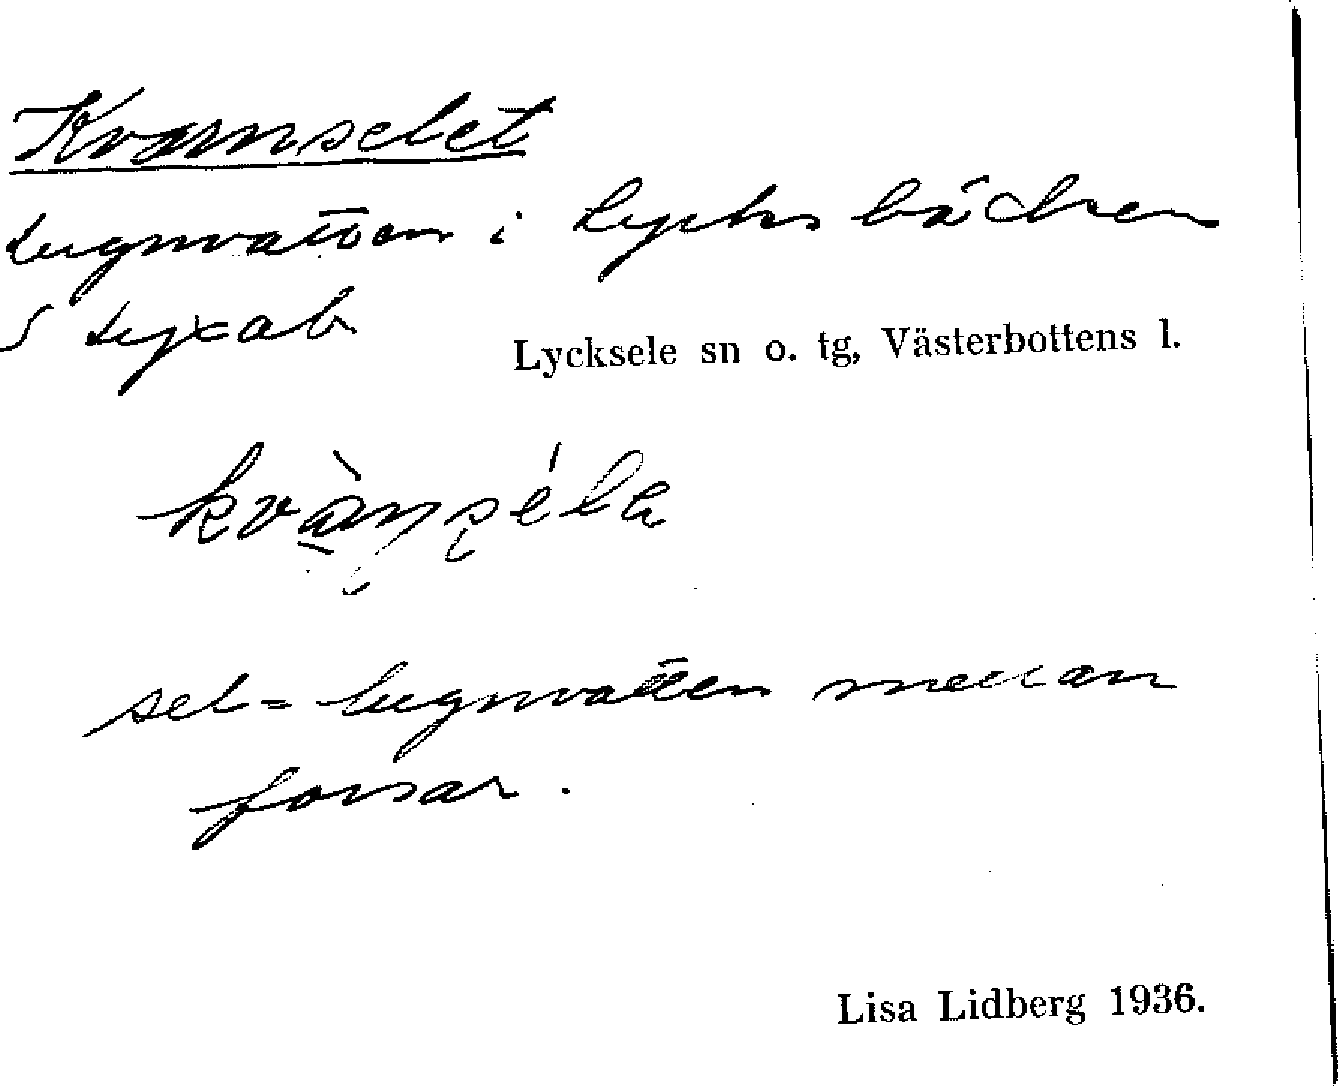 Kvarnselet
Lugnvatten i Lycksbäcken
S Lyxab
Lycksele sn o. tg, Västerbottens l.
sel = lugnvatten mellan
forsar.
Lisa Lidberg 1936.